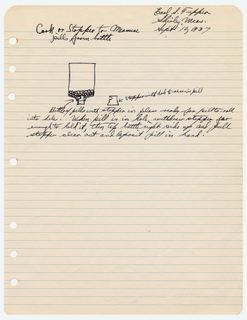 Earl S. Tupper
Shirley Mass.
Sept 13, 1937
Cork or Stopper to Measure
pills from bottle
stopper with hole to receive pill
Bottle of pills with stopper in place ready for pill to roll
into hole. When pill is in hole, withdraw stopper far
enough to hold it, then tip bottle right side up and pull
stopper clear out and deposit pill in hand.